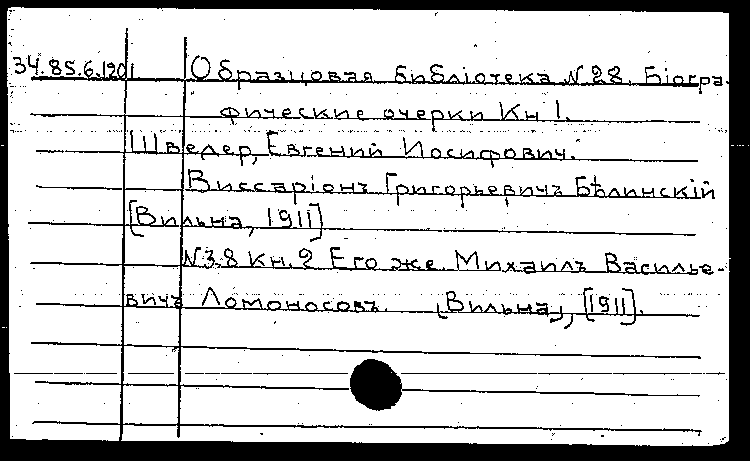 34.85.6.120 | Образцовая библіотека N 28. Біогра-
фические очерки Кн I.
Шведер, Евгений Иосифович.
Виссаріонъ Григорьевичъ Бѣлинскій
[Вильна, 1911]
N38 кн. 2 Его же. Михаилъ Василье-
вичъ Ломоносовъ. [Вильна], [1911].